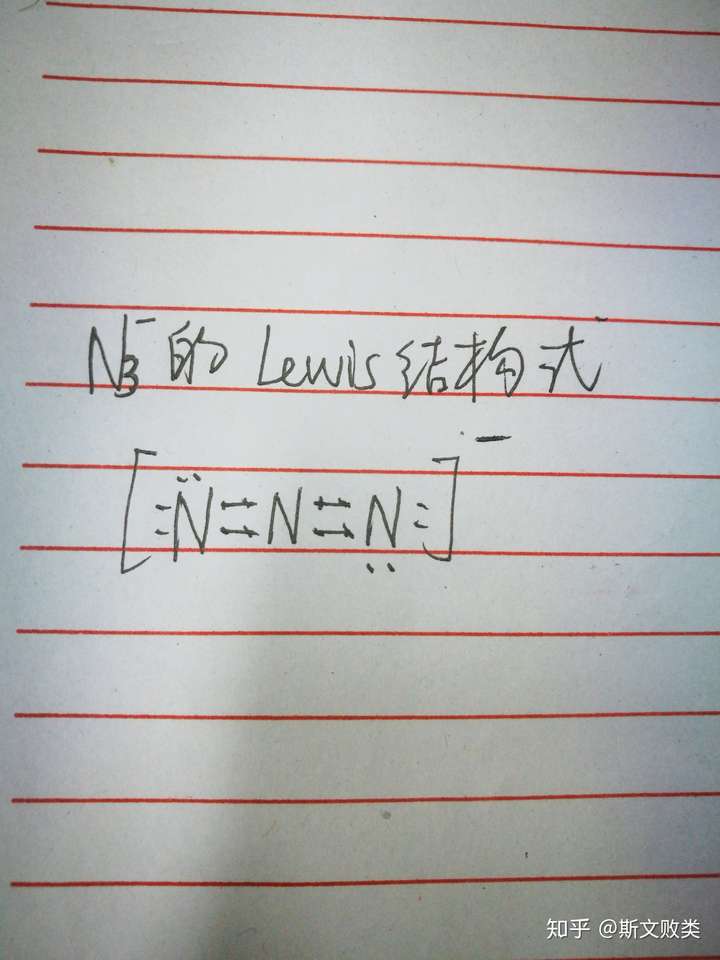 N₃⁻的Lewis结构式
[:N̈=N=N̤:]⁻
知乎 @斯文败类